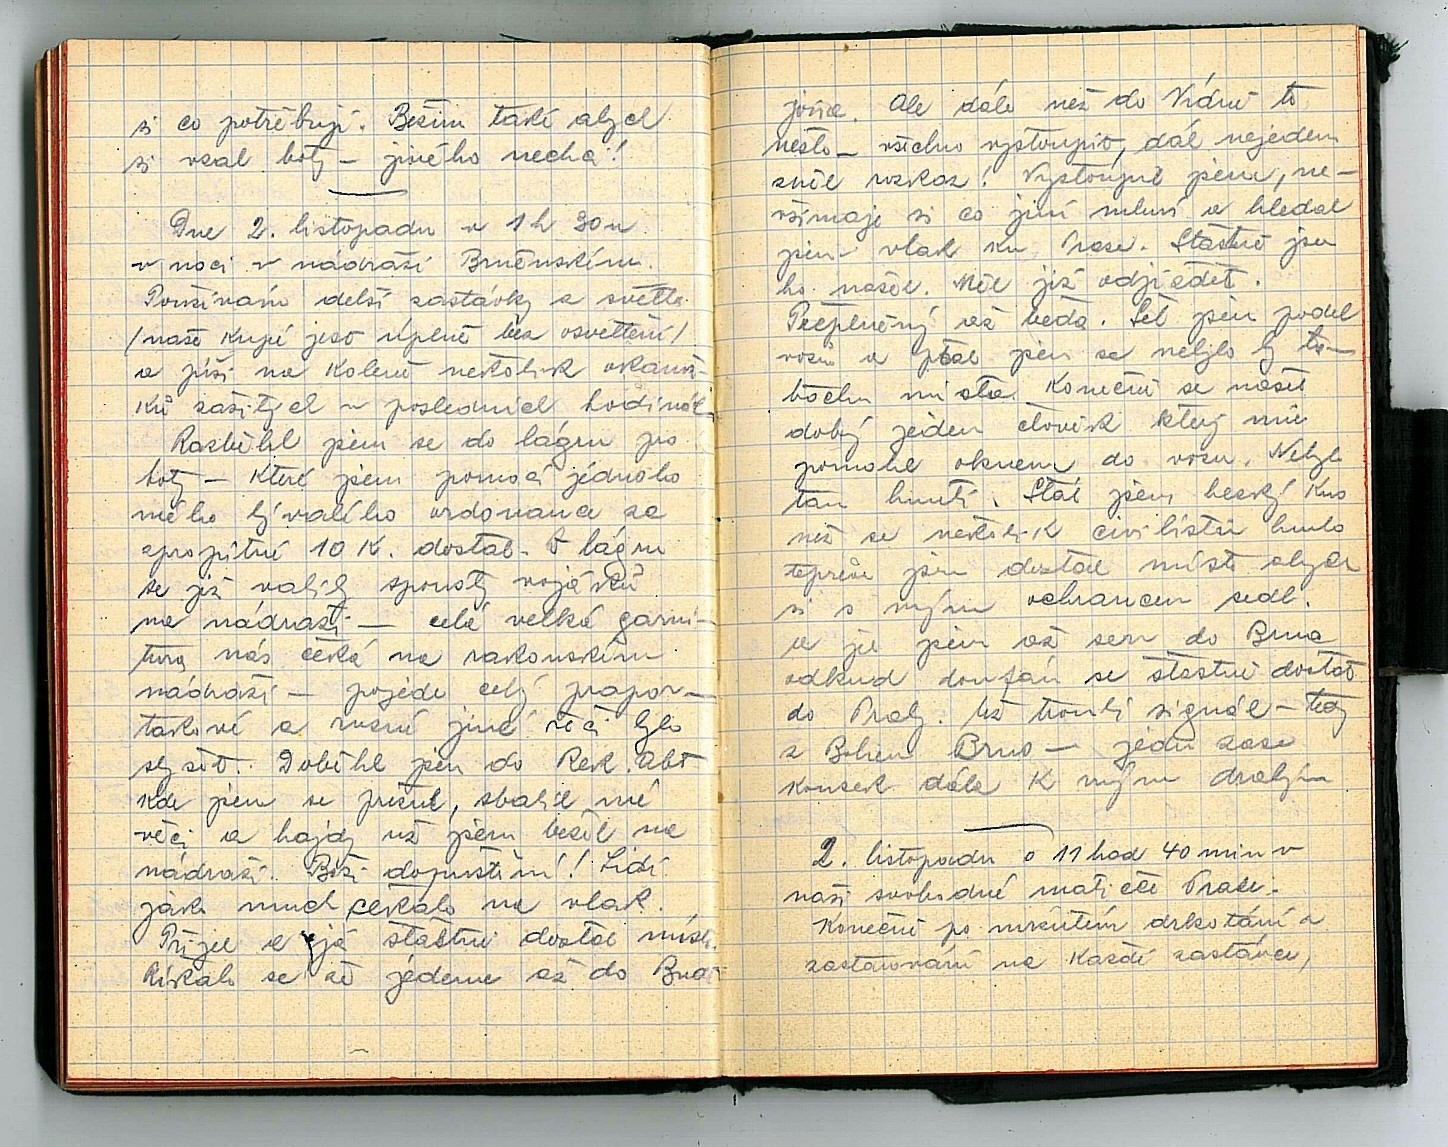 si co potřebují. Běžím také abych
si vzal boty – jiného nechá!
Dne 2. listopadu v 1 h 30 m
v noci v nádraží Brněnském.
Používám delší zastávky a světla
/naše kupé jest úplně bez osvětlení/
a píši na koleně několik okamži-
ků zažitých v posledních hodinách
Rozběhl jsem se do lágru pro
boty – které jsem pomocí jednoho
mého bývalého ordonance za
zpropitné 10 K. dostal. V lágru
se již valily spousty vojáků
na nádraží – celá velká garni-
tura nás čeká na rakouském
nádraží – pojede celý prapor –
takové a různé jiné řeči bylo
slyšet. Doběhl jsem do Rek. Abt
kde jsem se, sbalil mé
věci a hajdy už jsem běžel na
nádraží. Boží dopuštění! Lidí
jako much čekalo na vlak.
Přijel a já šťastně dostal místo.
Říkalo se že jedeme až do Brna
jenže. Ale dále než do Vídně to
nešlo – všichni vystoupit, dál nejedem
zněl rozkaz! Vystoupil jsem, ne-
všímaje si co jiní mluví a hledal
jsem vlak ku Praze. Šťastně jsem
ho našel. Měl již odjíždět.
Přeplněný až běda. Šel jsem podel
vozů a ptal jsem se nebylo by tro-
bochu místa. Konečně se našel
dobrý jeden člověk který mně
pomohl oknem do vozu. Nebylo
tam hnutí. Stál jsem hezký kus
než se několik civilistů hnulo
teprve jsem dostal místo abych
si s mým ochrancem sedl.
a jel jsem až sem do Brna
odkud doufám se šťastně dostat
do Prahy. Už troubí signál – tedy
s Bohem Brno – jedu zase
kousek dále k mým drahým
2. listopadu o 11 hod 40 min v
naší svobodné matičce Praze.
Konečně po mrzutém drkotání a
zastavování na každé zastávce,